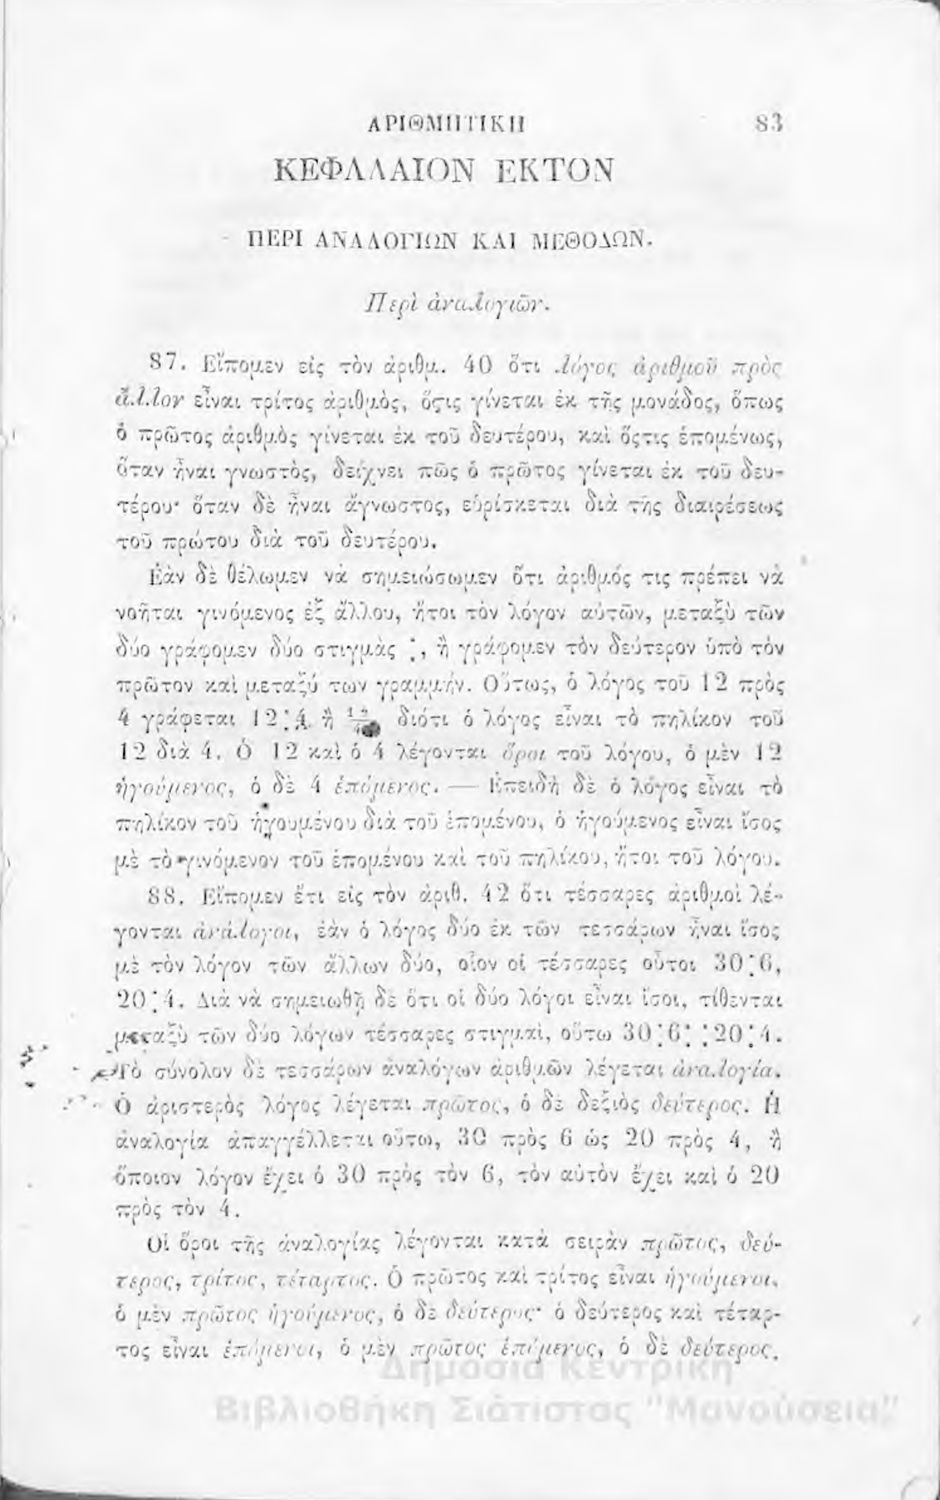 ΑΡΙΘΜΗΤΙΚΗ 83
ΚΕΦΑΛΑΙΟΝ ΕΚΤΟΝ
ΠΕΡΙ ΑΝΑΛΟΓΙΩΝ ΚΑΙ ΜΕΘΟΔΩΝ.
Περὶ ἀναλογιῶν.
87. Εἴπομεν εἰς τὸν ἀριθμ. 40 ὅτι λόγος ἀριθμοῦ πρὸς
ἄλλον εἶναι τρίτος ἀριθμὸς, ὅςις γίνεται ἐκ τῆς μονάδος, ὅπως
ὁ πρῶτος ἀριθμὸς γίνεται ἐκ τοῦ δευτέρου, καὶ ὅςτις ἑπομένως,
ὅταν ἦναι γνωστὸς, δείχνει πῶς ὁ πρῶτος γίνεται ἐκ τοῦ δευ-
τέρου· ὅταν δὲ ἦναι ἄγνωστος, εὑρίσκεται διὰ τῆς διαιρέσεως
τοῦ πρώτου διὰ τοῦ δευτέρου.
Ἐὰν δὲ θέλωμεν νὰ σημειώσωμεν ὅτι ἀριθμός τις πρέπει νὰ
νοῆται γινόμενος ἐξ ἄλλου, ἤτοι τὸν λόγον αὐτῶν, μεταξὺ τῶν
δύο γράφομεν δύο στιγμὰς :, ἢ γράφομεν τὸν δεύτερον ὑπὸ τὸν
πρῶτον καὶ μεταξύ των γραμμήν. Οὕτως, ὁ λόγος τοῦ 12 πρὸς
4 γράφεται 12:4 ἢ 12/4 διότι ὁ λόγος εἶναι τὸ πηλίκον τοῦ
12 διὰ 4. Ὁ 12 καὶ ὁ 4 λέγονται ὅροι τοῦ λόγου, ὁ μὲν 12
ἡγούμενος, ὁ δὲ 4 ἑπόμενος. — Ἐπειδὴ δὲ ὁ λόγος εἶναι τὸ
πηλίκον τοῦ ἡγουμένου διὰ τοῦ ἑπομένου, ὁ ἡγούμενος εἶναι ἴσος
μὲ τὸ γινόμενον τοῦ ἑπομένου καὶ τοῦ πηλίκου, ἤτοι τοῦ λόγου.
88. Εἴπομεν ἔτι εἰς τὸν ἀριθ. 42 ὅτι τέσσαρες ἀριθμοὶ λέ-
γονται ἀνάλογοι, ἐὰν ὁ λόγος δύο ἐκ τῶν τεσσάρων ἦναι ἴσος
μὲ τὸν λόγον τῶν ἄλλων δύο, οἷον οἱ τέσσαρες οὗτοι 30:6,
20:4. Διὰ νὰ σημειωθῇ δὲ ὅτι οἱ δύο λόγοι εἶναι ἴσοι, τίθενται
μεταξὺ τῶν δύο λόγων τέσσαρες στιγμαὶ, οὕτω 30:6::20:4.
Τὸ σύνολον δὲ τεσσάρων ἀναλόγων ἀριθμῶν λέγεται ἀναλογία.
Ὁ ἀριστερὸς λόγος λέγεται πρῶτος, ὁ δὲ δεξιὸς δεύτερος. Ἡ
ἀναλογία ἀπαγγέλλεται οὕτω, 30 πρὸς 6 ὡς 20 πρὸς 4, ἢ
ὁποιον λόγον ἔχει ὁ 30 πρὸς τὸν 6, τὸν αὐτὸν ἔχει καὶ ὁ 20
πρὸς τὸν 4.
Οἱ ὅροι τῆς ἀναλογίας λέγονται κατὰ σειρὰν πρῶτος, δεύ-
τερος, τρίτος, τέταρτος. Ὁ πρῶτος καὶ τρίτος εἶναι ἡγούμενοι,
ὁ μὲν πρῶτος ἡγούμενος, ὁ δὲ δεύτερος· ὁ δεύτερος καὶ τέταρ-
τος εἶναι ἑπόμενοι, ὁ μὲν πρῶτος ἑπόμενος, ὁ δὲ δεύτερος.
Δημόσια Κεντρική
Βιβλιοθήκη Σιάτιστας "Μανούσεια"